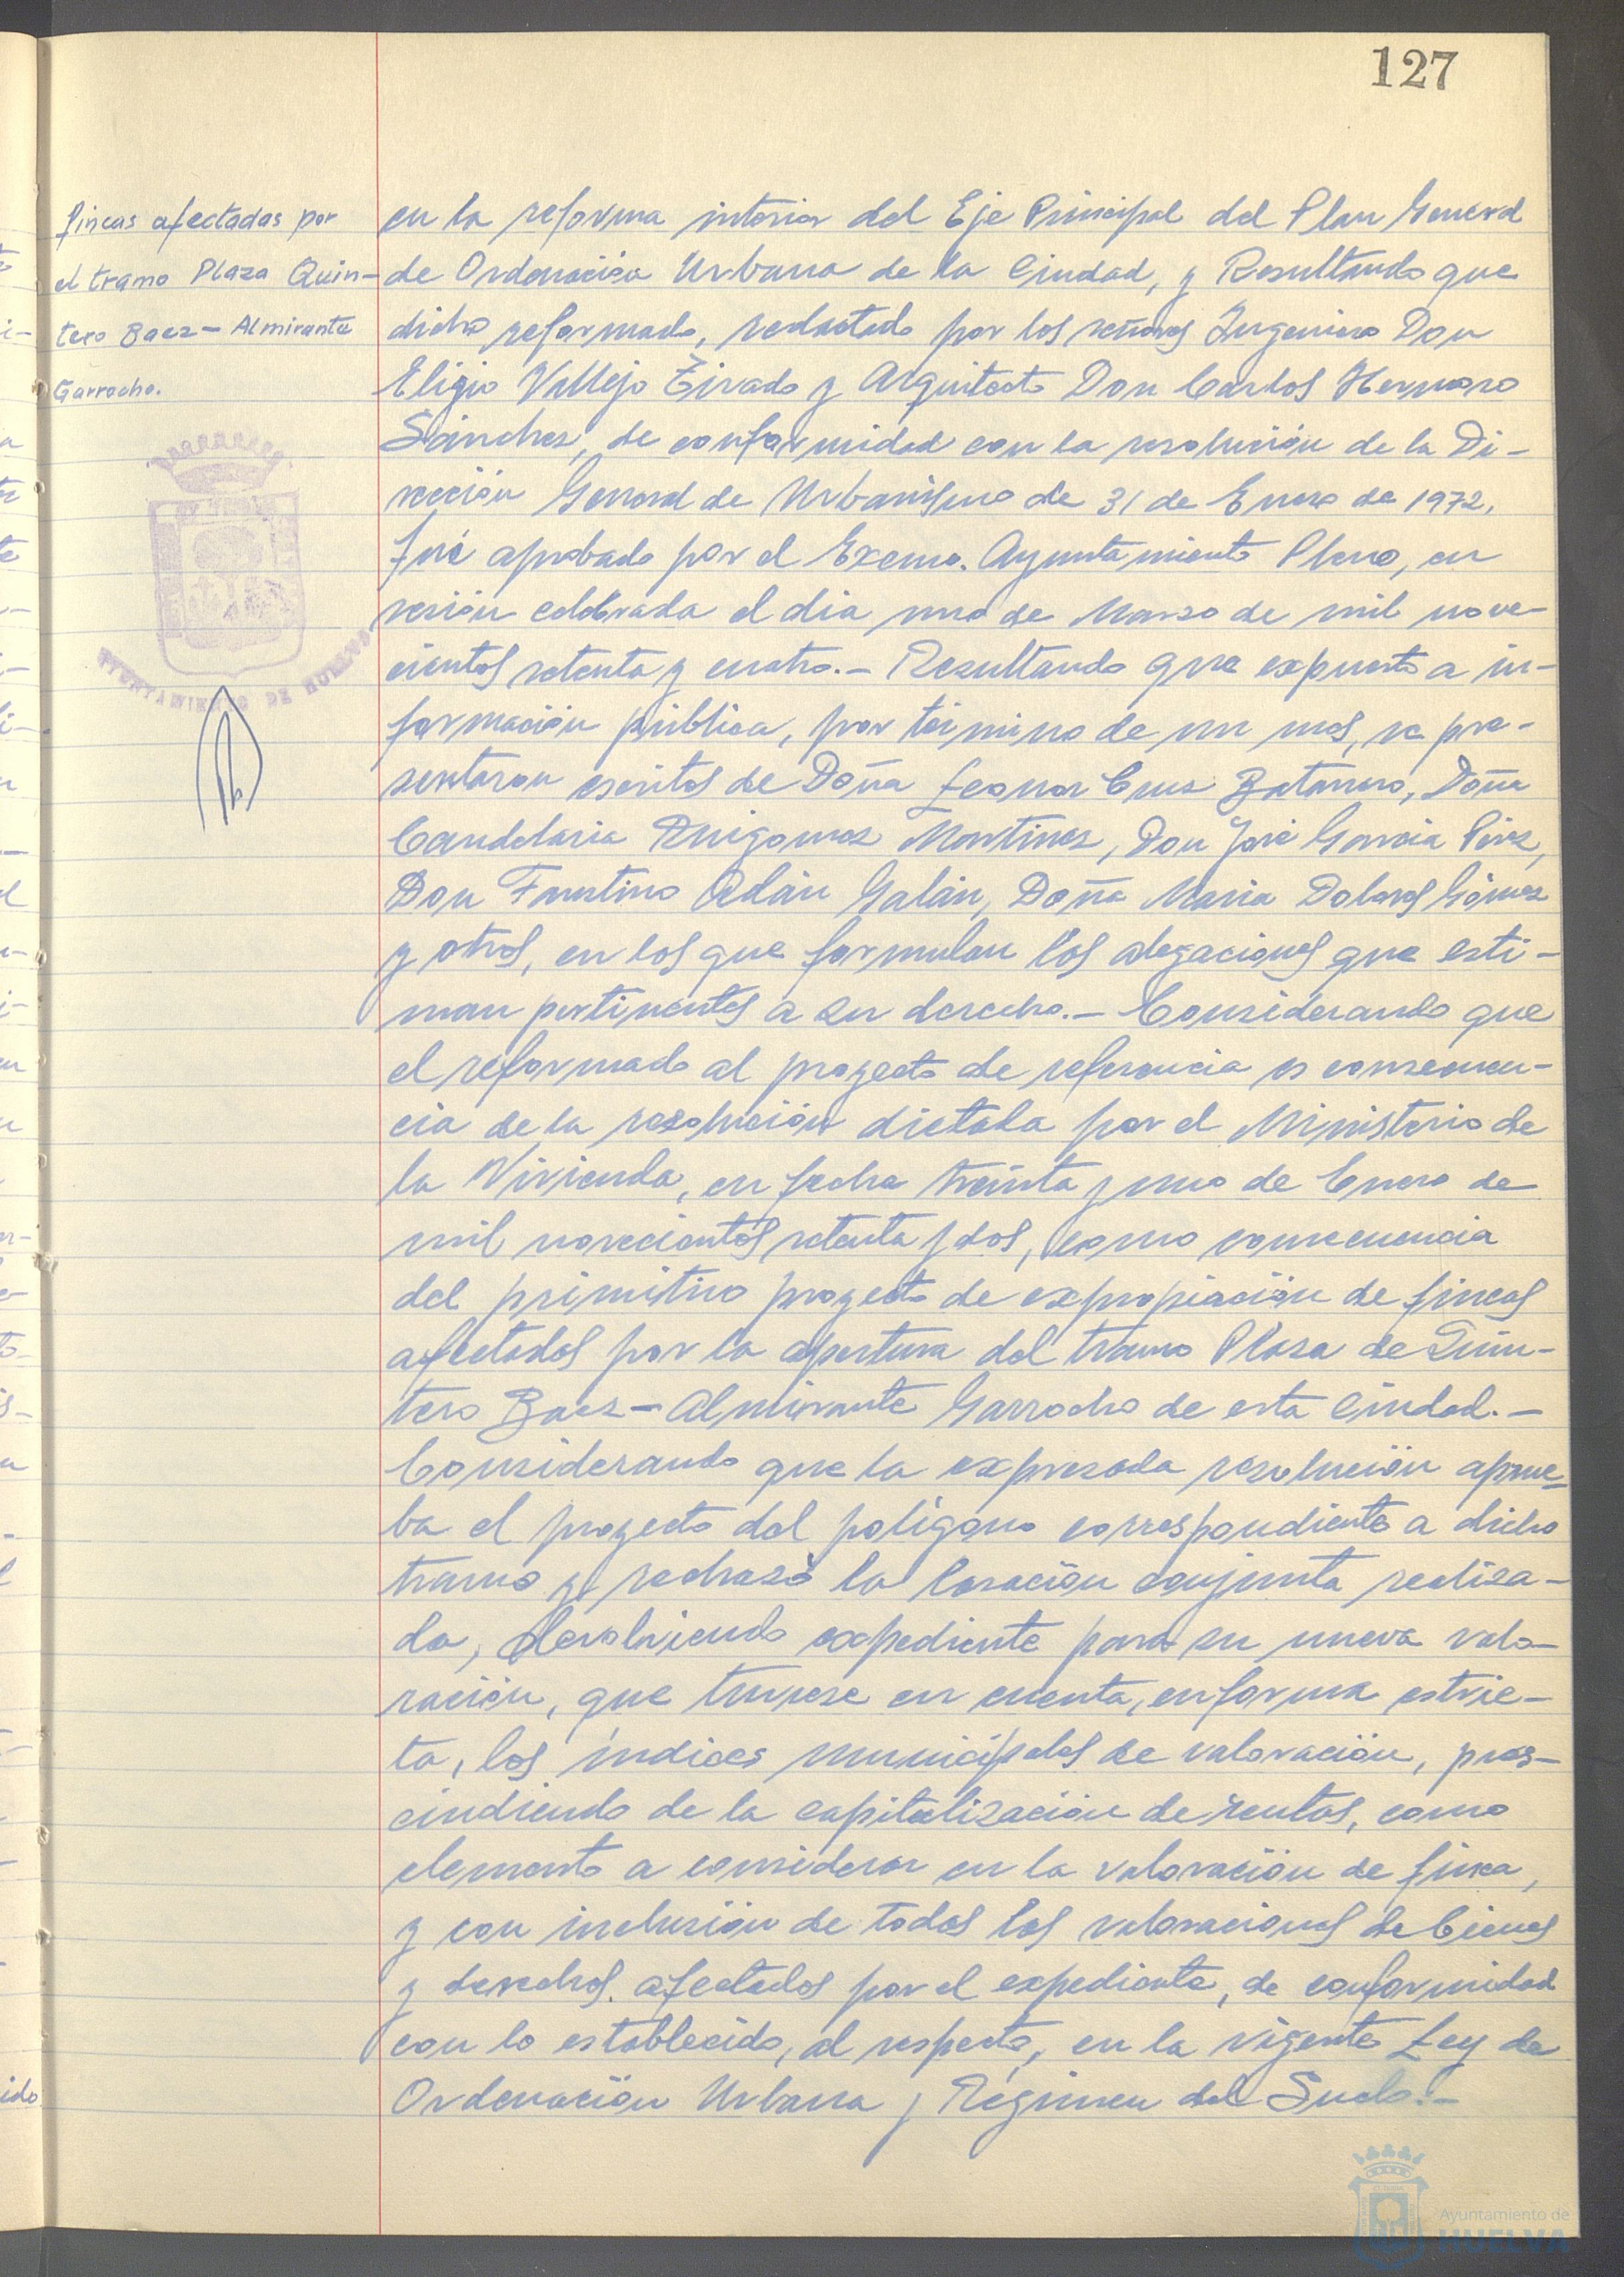 127
fincas afectadas por
el tramo Plaza Quin-
tero Baez - Almirante
Garrocho.
AYUNTAMIENTO DE HUELVA
en la reforma interior del Eje Principal del Plan General
de Ordenación Urbana de la Ciudad, y Resultando que
dicho reformado, redactado por los señores Ingeniero Don
Eligio Vallejo Tirado y Arquitecto Don Carlos Hermoso
Sánchez, de conformidad con la resolución de la Di-
rección General de Urbanismo de 31 de Enero de 1972,
fué aprobado por el Excmo. Ayuntamiento Pleno, en
sesión celebrada el dia uno de Marzo de mil nove-
cientos setenta y cuatro.- Resultando que expuesto a in-
formación pública, por término de un mes, se pre-
sentaron escritos de Doña Leonor Cruz Batanero, Doña
Candelaria Martinez, Don José Garcia Pérez,
Don Faustino Adán Galán, Doña Maria Dolores Gómez
y otros, en los que formulan las alegaciones que esti-
man pertinentes a su derecho.- Considerando que
el reformado al proyecto de referencia es consecuen-
cia de la resolución dictada por el Ministerio de
la Vivienda, en fecha treinta y uno de Enero de
mil novecientos setenta y dos, como consecuencia
del primitivo proyecto de expropiación de fincas
afectadas por la apertura del tramo Plaza de Quin-
tero Baez - Almirante Garrocho de esta Ciudad.-
Considerando que la expresada resolución aprue-
ba el proyecto del polígono correspondiente a dicho
tramo y rechazó la tasación conjunta realiza-
da, devolviendo expediente para su nueva valo-
ración, que tuviese en cuenta, en forma estric-
ta, los índices municipales de valoración, pres-
cindiendo de la capitalización de rentas, como
elemento a considerar en la valoración de finca,
y con inclusión de todas las valoraciones de bienes
y derechos afectados por el expediente, de conformidad
con lo establecido, al respecto, en la vigente Ley de
Ordenación Urbana y Régimen del Suelo.-
Ayuntamiento de
HUELVA